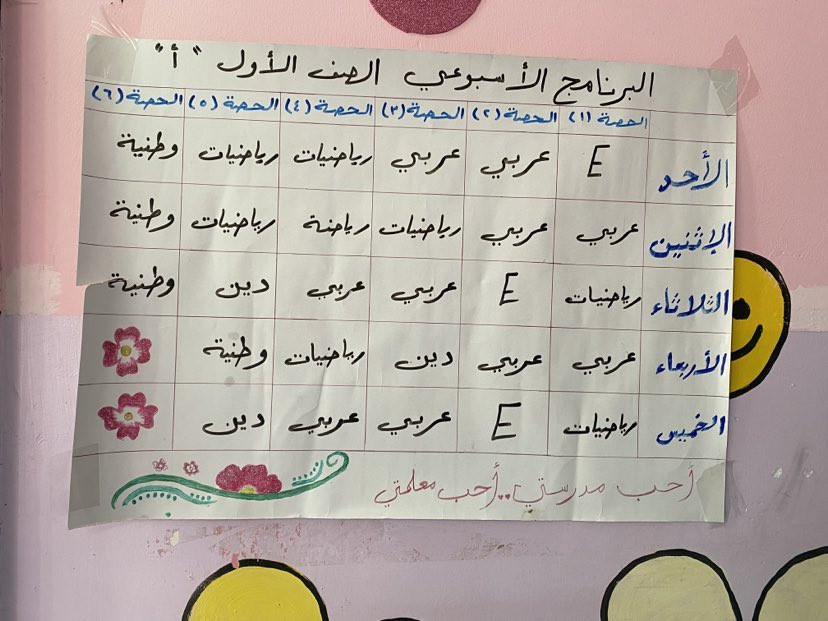 البرنامج الأسبوعي الصف الأول "أ"
الحصة (١) الحصة (٢) الحصة (٣) الحصة (٤) الحصة (٥) الحصة (٦)
الأحد E عربي عربي رياضيات رياضيات وطنية
الإثنين عربي عربي رياضيات رياضة رياضيات وطنية
الثلاثاء رياضيات E عربي عربي دين وطنية
الأربعاء عربي عربي دين رياضيات وطنية
الخميس رياضيات E عربي عربي دين
أحب مدرستي .. أحب معلمتي